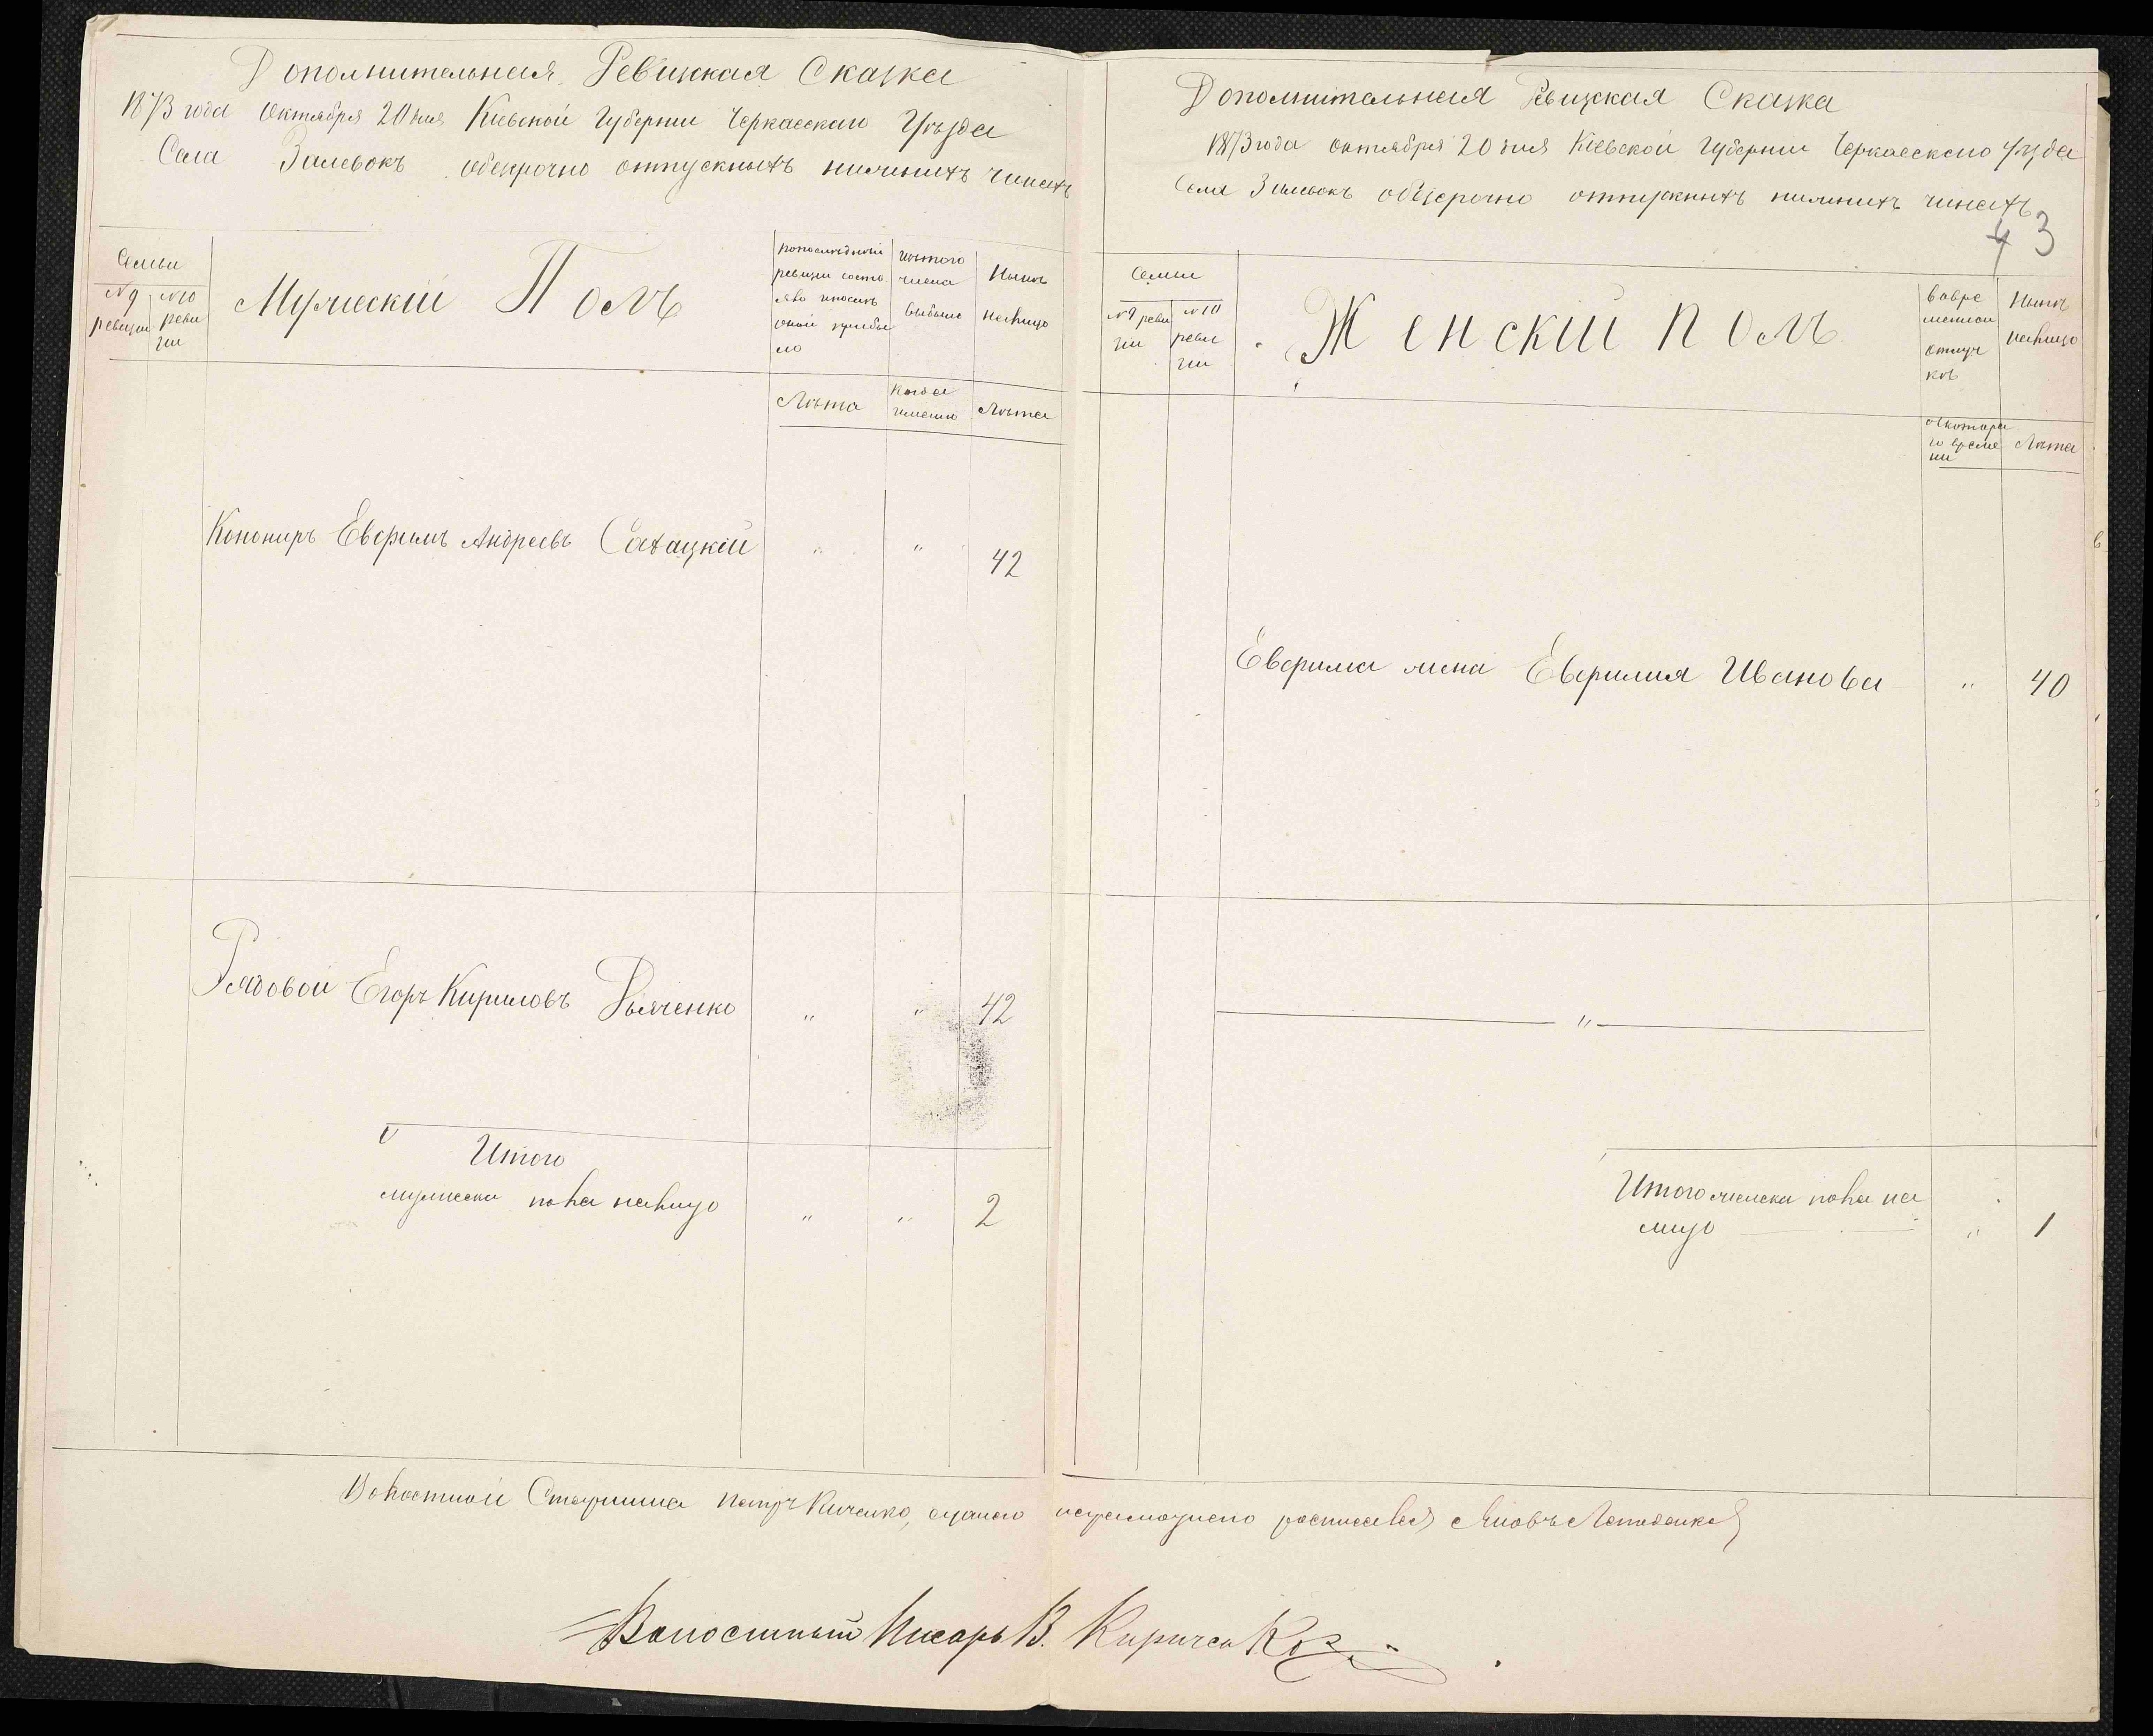 Дополнительная Ревизкая Сказка
1873 года Октября 20 дня Кіевской Губерніи Черкаскаго Уѣзда
Села Залевокъ обезрочно отпускныхъ нижнихъ чиновъ
Семьи
№ 9 ревизии
№ 10 ревизии
Мужескій Полъ
Изтого числа выбыло
Нынѣ налицо
Лѣта
Когда именно
Лѣта
Конониръ Евфимъ Андреевъ Сахацкій " " 42
Рядовой Егоръ Кириловъ Дьяченко " " 42
Итого
мужеска пола налицо " " 2
Дополнительная Ревизкая Сказка
1873 года октября 20 дня Кіевской Губерніи Черкаскаго Уѣзда
Села Залевокъ обезсрочно отпускныхъ нижнихъ чиновъ
43
Семьи
№ 9 ревизии
№ 10 ревизии
Женскій полъ
Вовременной отлучкѣ
Нынѣ налицо
Скотораго времени
Лѣта
Евфима жена Евфимия Иванова " 40
"
Итого женска пола на
лицо " 1
Волостной Старшина Петръ Киченко, а занего неграмотнаго росписался Яковъ
Волостный Писарь В. Кириченко